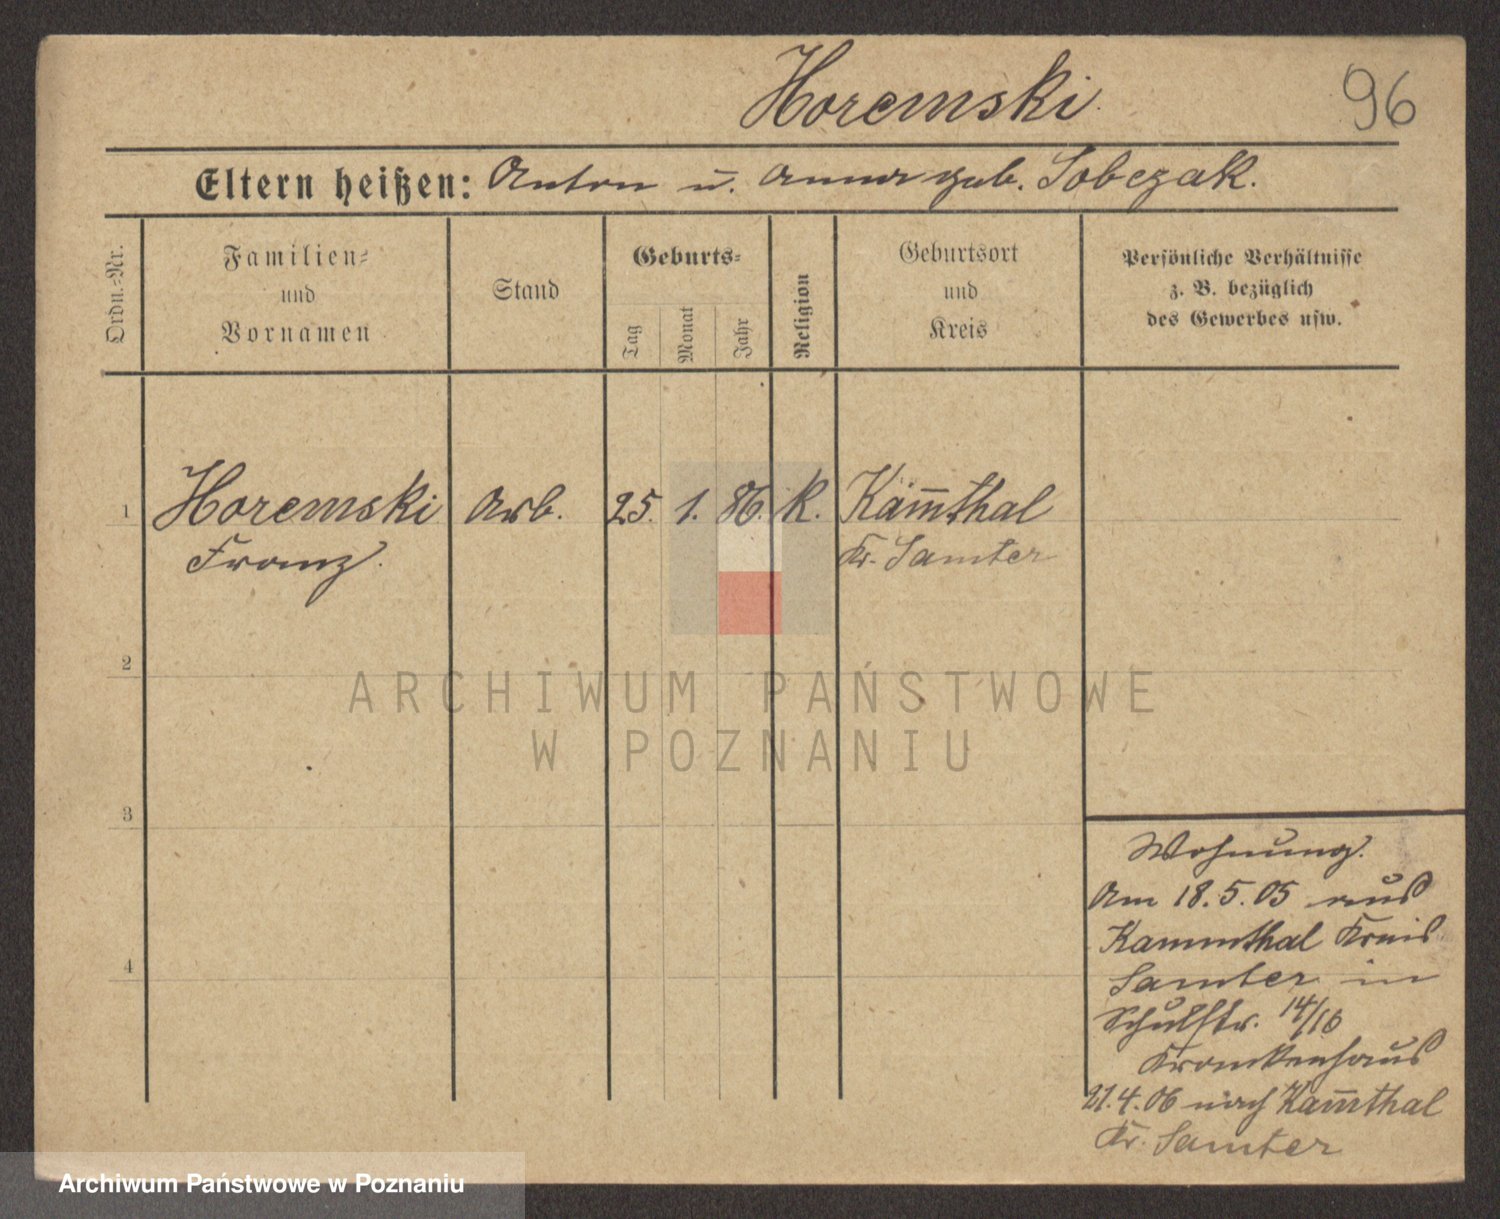 Horemski
96
Eltern heißen: Anton u. Anna geb. Sobczak.
Ordn.-Nr.
Familien-
und
Vornamen
Stand
Geburts-
Tag
Monat
Jahr
Religion
Geburtsort
und
Kreis
Persönliche Verhältnisse
z. B. bezüglich
des Gewerbes usw.
1
Horemski Arb. 25. 1. 86. k. Käm̅thal
Franz. Kr. Samter
2
ARCHIWUM PAŃSTWOWE
W POZNANIU
3
Wohnung.
Am 18.5.05 aus
Kammthal Kreis
4
Samter in
Schulstr. 14/16
Krankenhaus
21.4.06 nach Kam̅thal
Kr. Samter
Archiwum Państwowe w Poznaniu